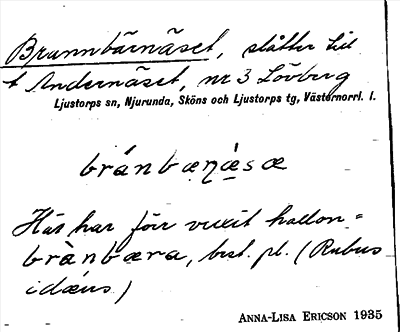 Brannbärnäset, slåtter till
t Andernäset, nr 3 Lövberg
Ljustorps sn, Njurunda, Sköns och Ljustorps tg, Västernorrl. l.
bránbæṇæ̀sæ
Här har förr vuxit hallon =
brànbæra, best. pl. (Rubus
idæus)
ANNA-LISA ERICSON 1935